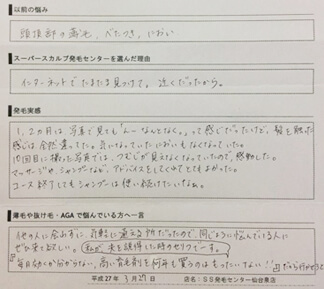 以前の悩み
頭頂部の薄毛、べたつき、におい
スーパースカルプ発毛センターを選んだ理由
インターネットでたまたま見つけて。近くだったから。
発毛実感
1、2ヵ月は、写真で見ても「んーなんとなく。」って感じだったけど、髪を触った
感じは全然違ってた。気になっていたにおいもなくなっていた。
10回目に撮った写真では、つむじが見えなくなっていたので、感動した。
マッサージや、シャンプーなど、アドバイスをしてくれてとてもよかった。
コース終了してもシャンプーは使い続けたいなぁ。
薄毛や抜け毛・AGAで悩んでいる方へ一言
他の人に会わずに、気軽に通える所だったので、同じように悩んでいる人に
ぜひ来てほしい。(私が夫を説得した時のセリフでーす。)
「毎日効くか分からない、高い育毛剤を何年も買うのはもったいない!!」
平成27年 3月27日
店名:SS発毛センター仙台泉店